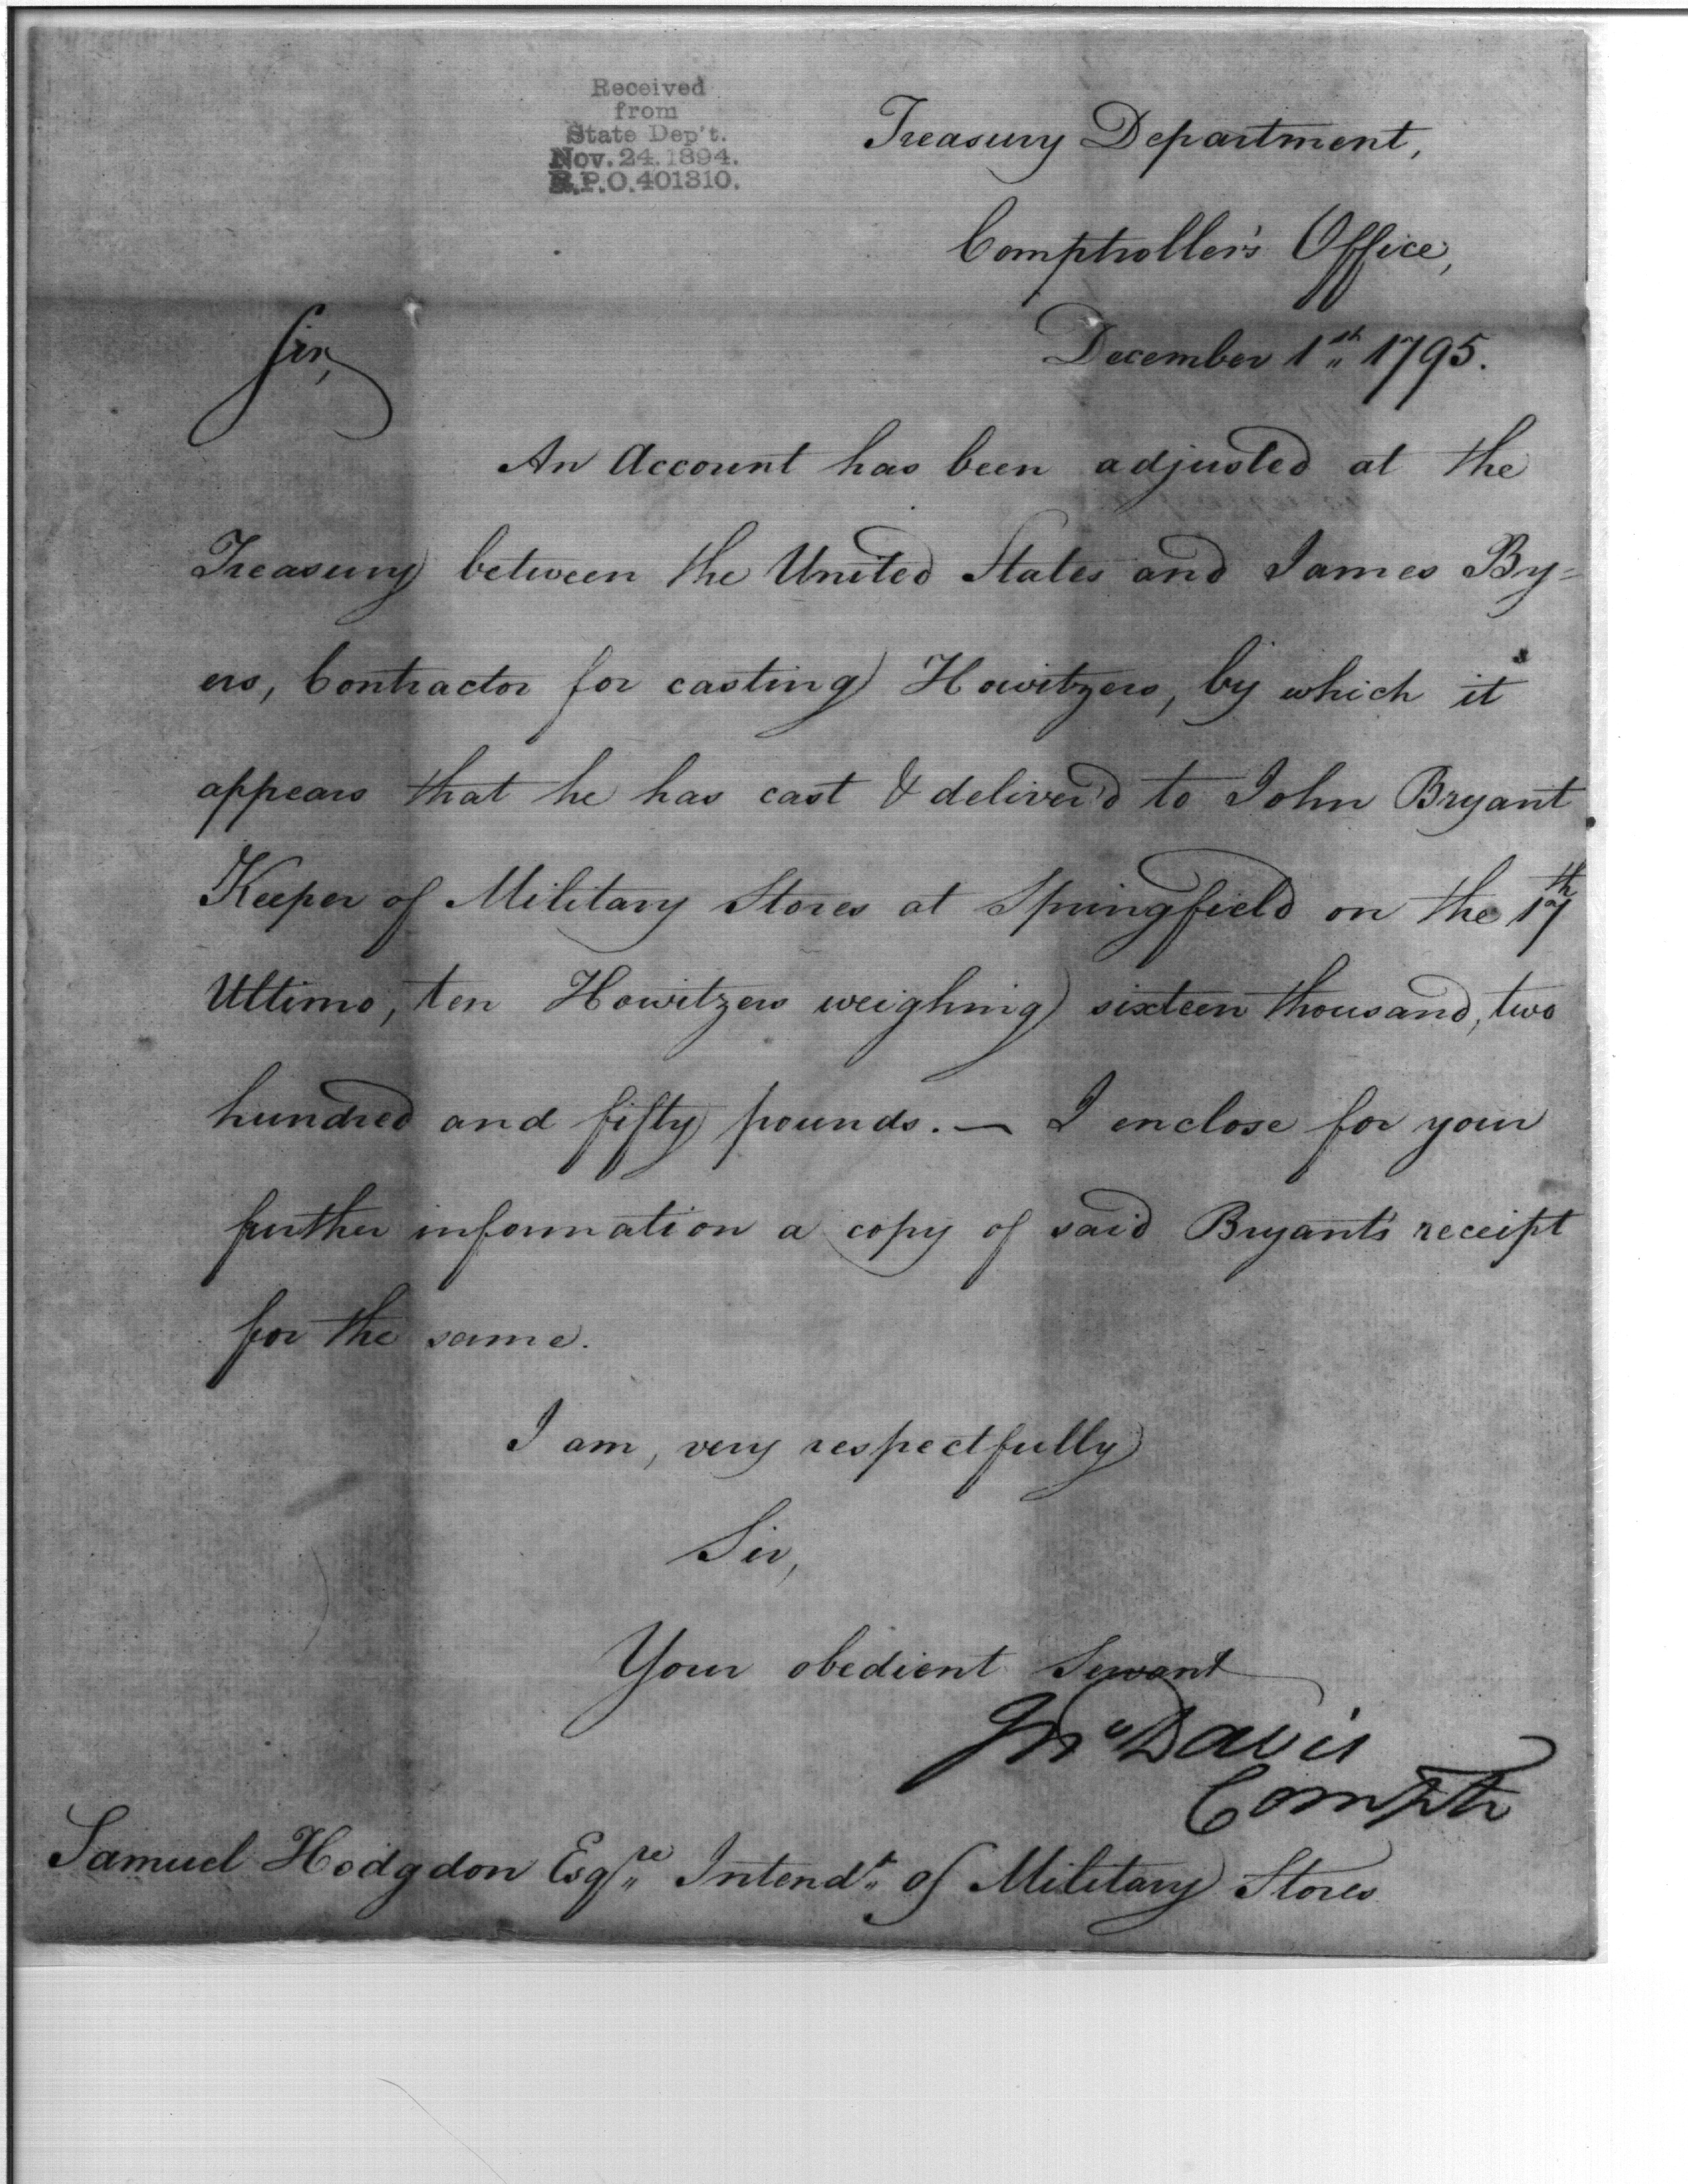 Received
from
State Dep't.
Nov. 24. 1894.
R.P.O. 401310.
Treasury Department,
Comptroller's Office,
December 1st 1795.
Sir,
An Account has been adjusted at the
Treasury between the United States and James By=
ers, Contractor for casting Howitzers, by which it
appears that he has cast & deliver'd to John Bryant
Keeper of Military Stores at Springfield on the 17th
Ultimo, ten Howitzers weighing sixteen thousand, two
hundred and fifty pounds. — I enclose for your
further information a copy of said Bryant's receipt
for the same.
I am, very respectfully
Sir,
Your obedient Servant
Jno Davis
Comptr
Samuel Hodgdon Esqre Intendt of Military Stores